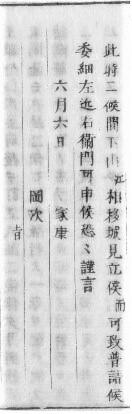 此時ニ候間下山江相移號見立候而可致普請候
委細左近右衛門可申候恐々謹言
六月六日　家康
岡次